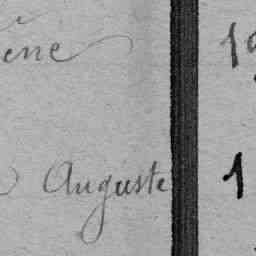 ène 19
Auguste 1